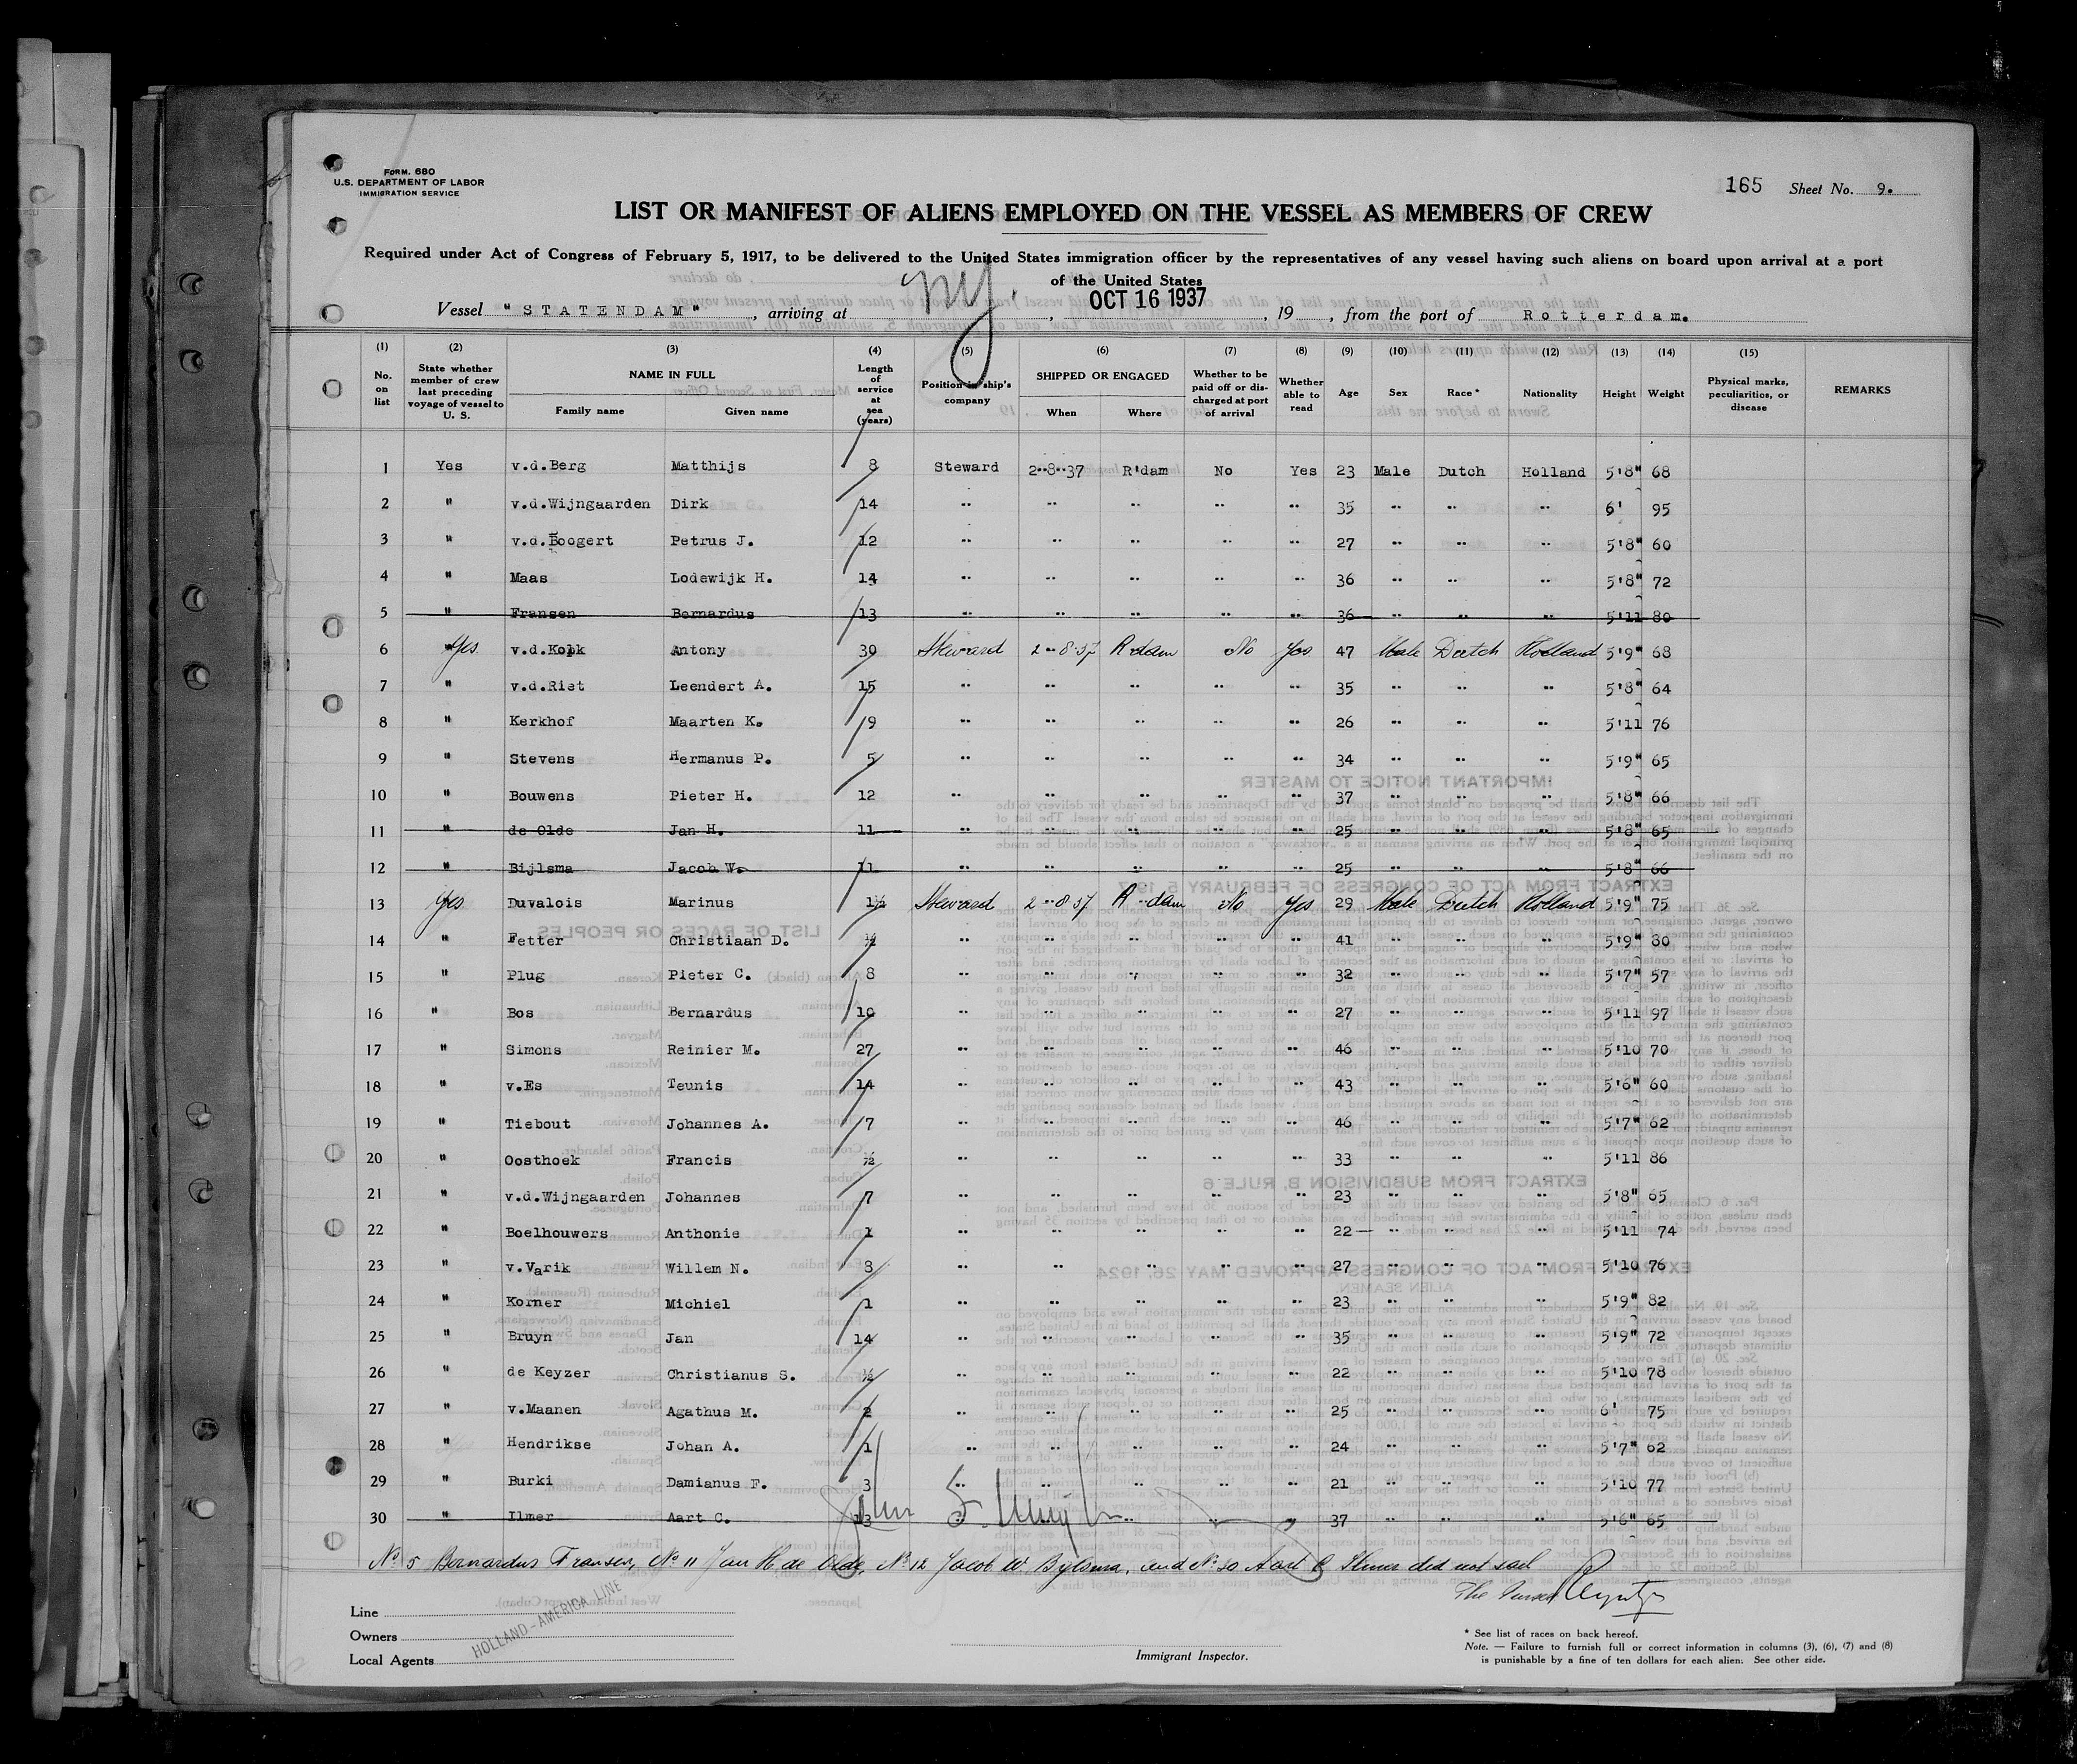 FORM. 680
U.S. DEPARTMENT OF LABOR
IMMIGRATION SERVICE
165 Sheet No. 9.
LIST OR MANIFEST OF ALIENS EMPLOYED ON THE VESSEL AS MEMBERS OF CREW
Required under Act of Congress of February 5, 1917, to be delivered to the United States immigration officer by the representatives of any vessel having such aliens on board upon arrival at a port
of the United States
Vessel "STATENDAM", arriving at NY., OCT 16 1937, 19 , from the port of Rotterdam.
(1) (2) (3) (4) (5) (6) (7) (8) (9) (10) (11) (12) (13) (14) (15)
No. on list State whether member of crew last preceding voyage of vessel to U. S. NAME IN FULL Family name Given name Length of service at sea (years) Position in ship's company SHIPPED OR ENGAGED When Where Whether to be paid off or discharged at port of arrival Whether able to read Age Sex Race* Nationality Height Weight Physical marks, peculiarities, or disease REMARKS
1 Yes v.d.Berg Matthijs 8 Steward 2-8-37 R'dam No Yes 23 Male Dutch Holland 5'8" 68
2 " v.d.Wijngaarden Dirk 14 " " " " " 35 " " " 6' 95
3 " v.d.Boogert Petrus J. 12 " " " " " 27 " " " 5'8" 60
4 " Maas Lodewijk H. 14 " " " " " 36 " " " 5'8" 72
5 " Fransen Bernardus 13 " " " " " 36 " " " 5'11 80
6 Yes v.d.Kolk Antony 30 Steward 2-8-37 R'dam No Yes 47 Male Dutch Holland 5'9" 68
7 " v.d.Riet Leendert A. 15 " " " " " 35 " " " 5'8" 64
8 " Kerkhof Maarten K. 9 " " " " " 26 " " " 5'11 76
9 " Stevens Hermanus P. 5 " " " " " 34 " " " 5'9" 65
10 " Bouwens Pieter H. 12 " " " " " 37 " " " 5'8" 66
11 " de Olde Jan H. 11 " " " " " 25 " " " 5'8" 65
12 " Bijlsma Jacob W. 11 " " " " " 25 " " " 5'8" 66
13 Yes Duvalois Marinus 1½ Steward 2-8 37 R-dam No Yes 29 Male Dutch Holland 5'9" 75
14 " Fetter Christiaan D. ½ " " " " " 41 " " " 5'9" 80
15 " Plug Pieter C. 8 " " " " " 32 " " " 5'7" 57
16 " Bos Bernardus 10 " " " " " 27 " " " 5'11 97
17 " Simons Reinier M. 27 " " " " " 46 " " " 5'10 70
18 " v.Es Teunis 14 " " " " " 43 " " " 5'6" 60
19 " Tiebout Johannes A. 7 " " " " " 46 " " " 5'7" 62
20 " Oosthoek Francis ½ " " " " " 33 " " " 5'11 86
21 " v.d.Wijngaarden Johannes 7 " " " " " 23 " " " 5'8" 65
22 " Boelhouwers Anthonie 1 " " " " " 22 " " " 5'11 74
23 " v.Varik Willem N. 8 " " " " " 27 " " " 5'10 76
24 " Korner Michiel 1 " " " " " 23 " " " 5'9" 82
25 " Bruyn Jan 14 " " " " " 35 " " " 5'9" 72
26 " de Keyzer Christianus S. ½ " " " " " 22 " " " 5'10 78
27 " v.Maanen Agathus M. 2 " " " " " 25 " " " 6' 75
28 " Hendrikse Johan A. 1 " " " " " 24 " " " 5'7" 62
29 " Burki Damianus F. 3 " " " " " 21 " " " 5'10 77
30 " Ilmer Aart C. 13 " " " " " 37 " " " 5'6" 65
No 5 Bernardus Fransen, No 11 Jan H. de Olde, No 12 Jacob W. Bylsma, and No 30 Aart C. Ilmer did not sail
The Purser
Line
Owners
Local Agents
HOLLAND-AMERICA LINE
Immigrant Inspector.
* See list of races on back hereof.
Note. — Failure to furnish full or correct information in columns (3), (6), (7) and (8)
is punishable by a fine of ten dollars for each alien. See other side.